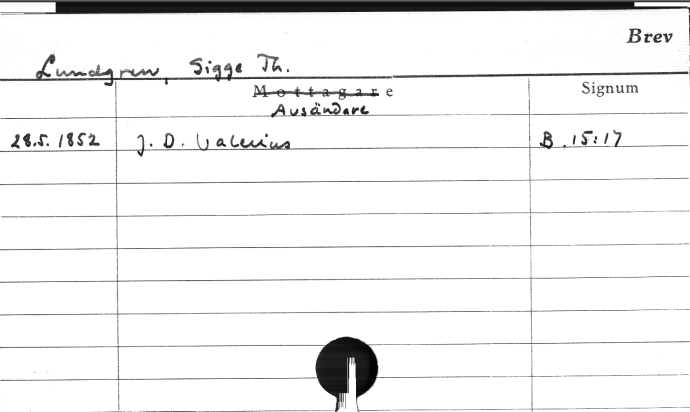 Brev
Lundgren, Sigge Th.
Mottagare Signum
Avsändare
28.5.1852 J. D. Valerius B.15:17